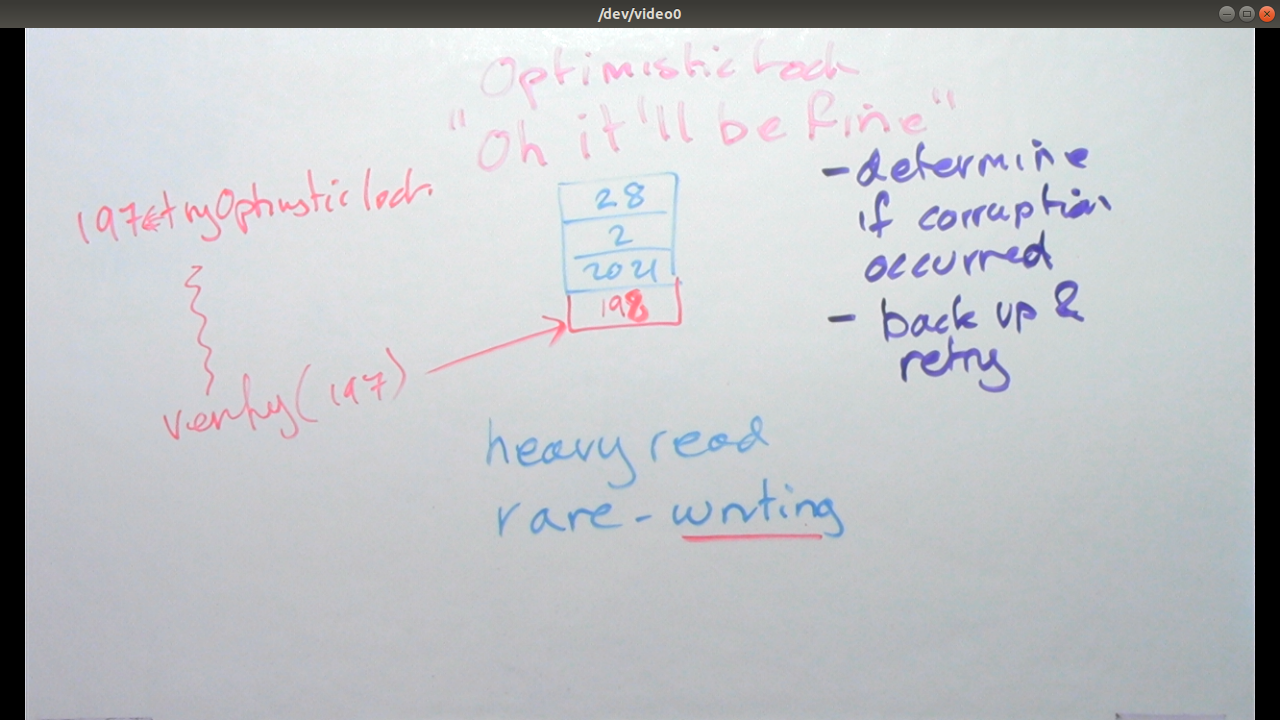 /dev/video0
Optimistic Lock
"Oh it'll be fine"
197 ← tryOptimisticlock.
28
2
2021
198
verify(197)
- determine
if corruption
occurred
- back up &
retry
heavy read
rare - writing